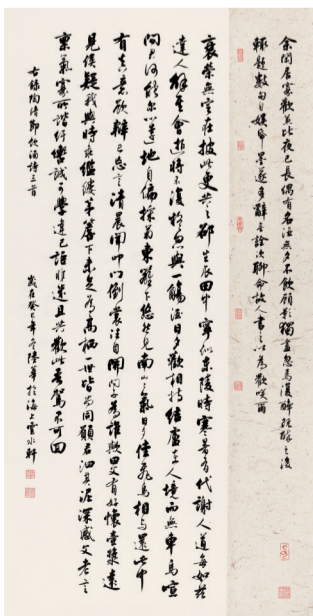 余閑居寡歡兼比夜已長偶有名酒無夕不飲顧影獨盡忽焉復醉既醉之後
輒題數句自娛紙墨遂多辭無詮次聊命故人書之以為歡笑爾
衰榮無定在彼此更共之邵生瓜田中寧似東陵時寒暑有代謝人道每如茲
達人解其會逝將不復疑忽與一觴酒日夕歡相持結廬在人境而無車馬喧
問君何能爾心遠地自偏採菊東籬下悠然見南山山氣日夕佳飛鳥相與還此中
有真意欲辯已忘言清晨聞叩門倒裳往自開問子為誰歟田父有好懷壺漿遠
見候疑我與時乖繿縷茅簷下未足為高栖一世皆尚同願君汩其泥深感父老言
稟氣寡所諧紆轡誠可學違己詎非迷且共歡此飲吾駕不可回
右錄陶靖節飲酒詩三首
歲在癸巳年冬陸華於海上雲水軒